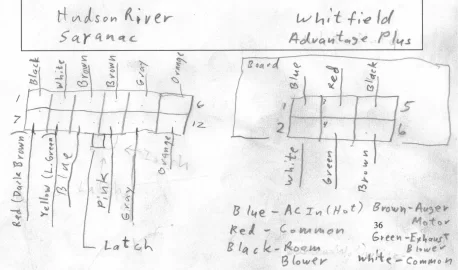 Hudson River
Saranac
Whitfield
Advantage Plus
Black
White
Brown
Brown
Gray
Orange
1
6
7
12
Red (Dark Brown)
Yellow (L. Green)
Blue
Pink
Gray
Orange
Latch
Board
Blue
Red
Black
1
5
2
6
White
Green
Brown
Blue - AC In (Hot)
Red - Common
Black - Room
Blower
Brown - Auger
Motor
36
Green - Exhaust
Blower
White - Common